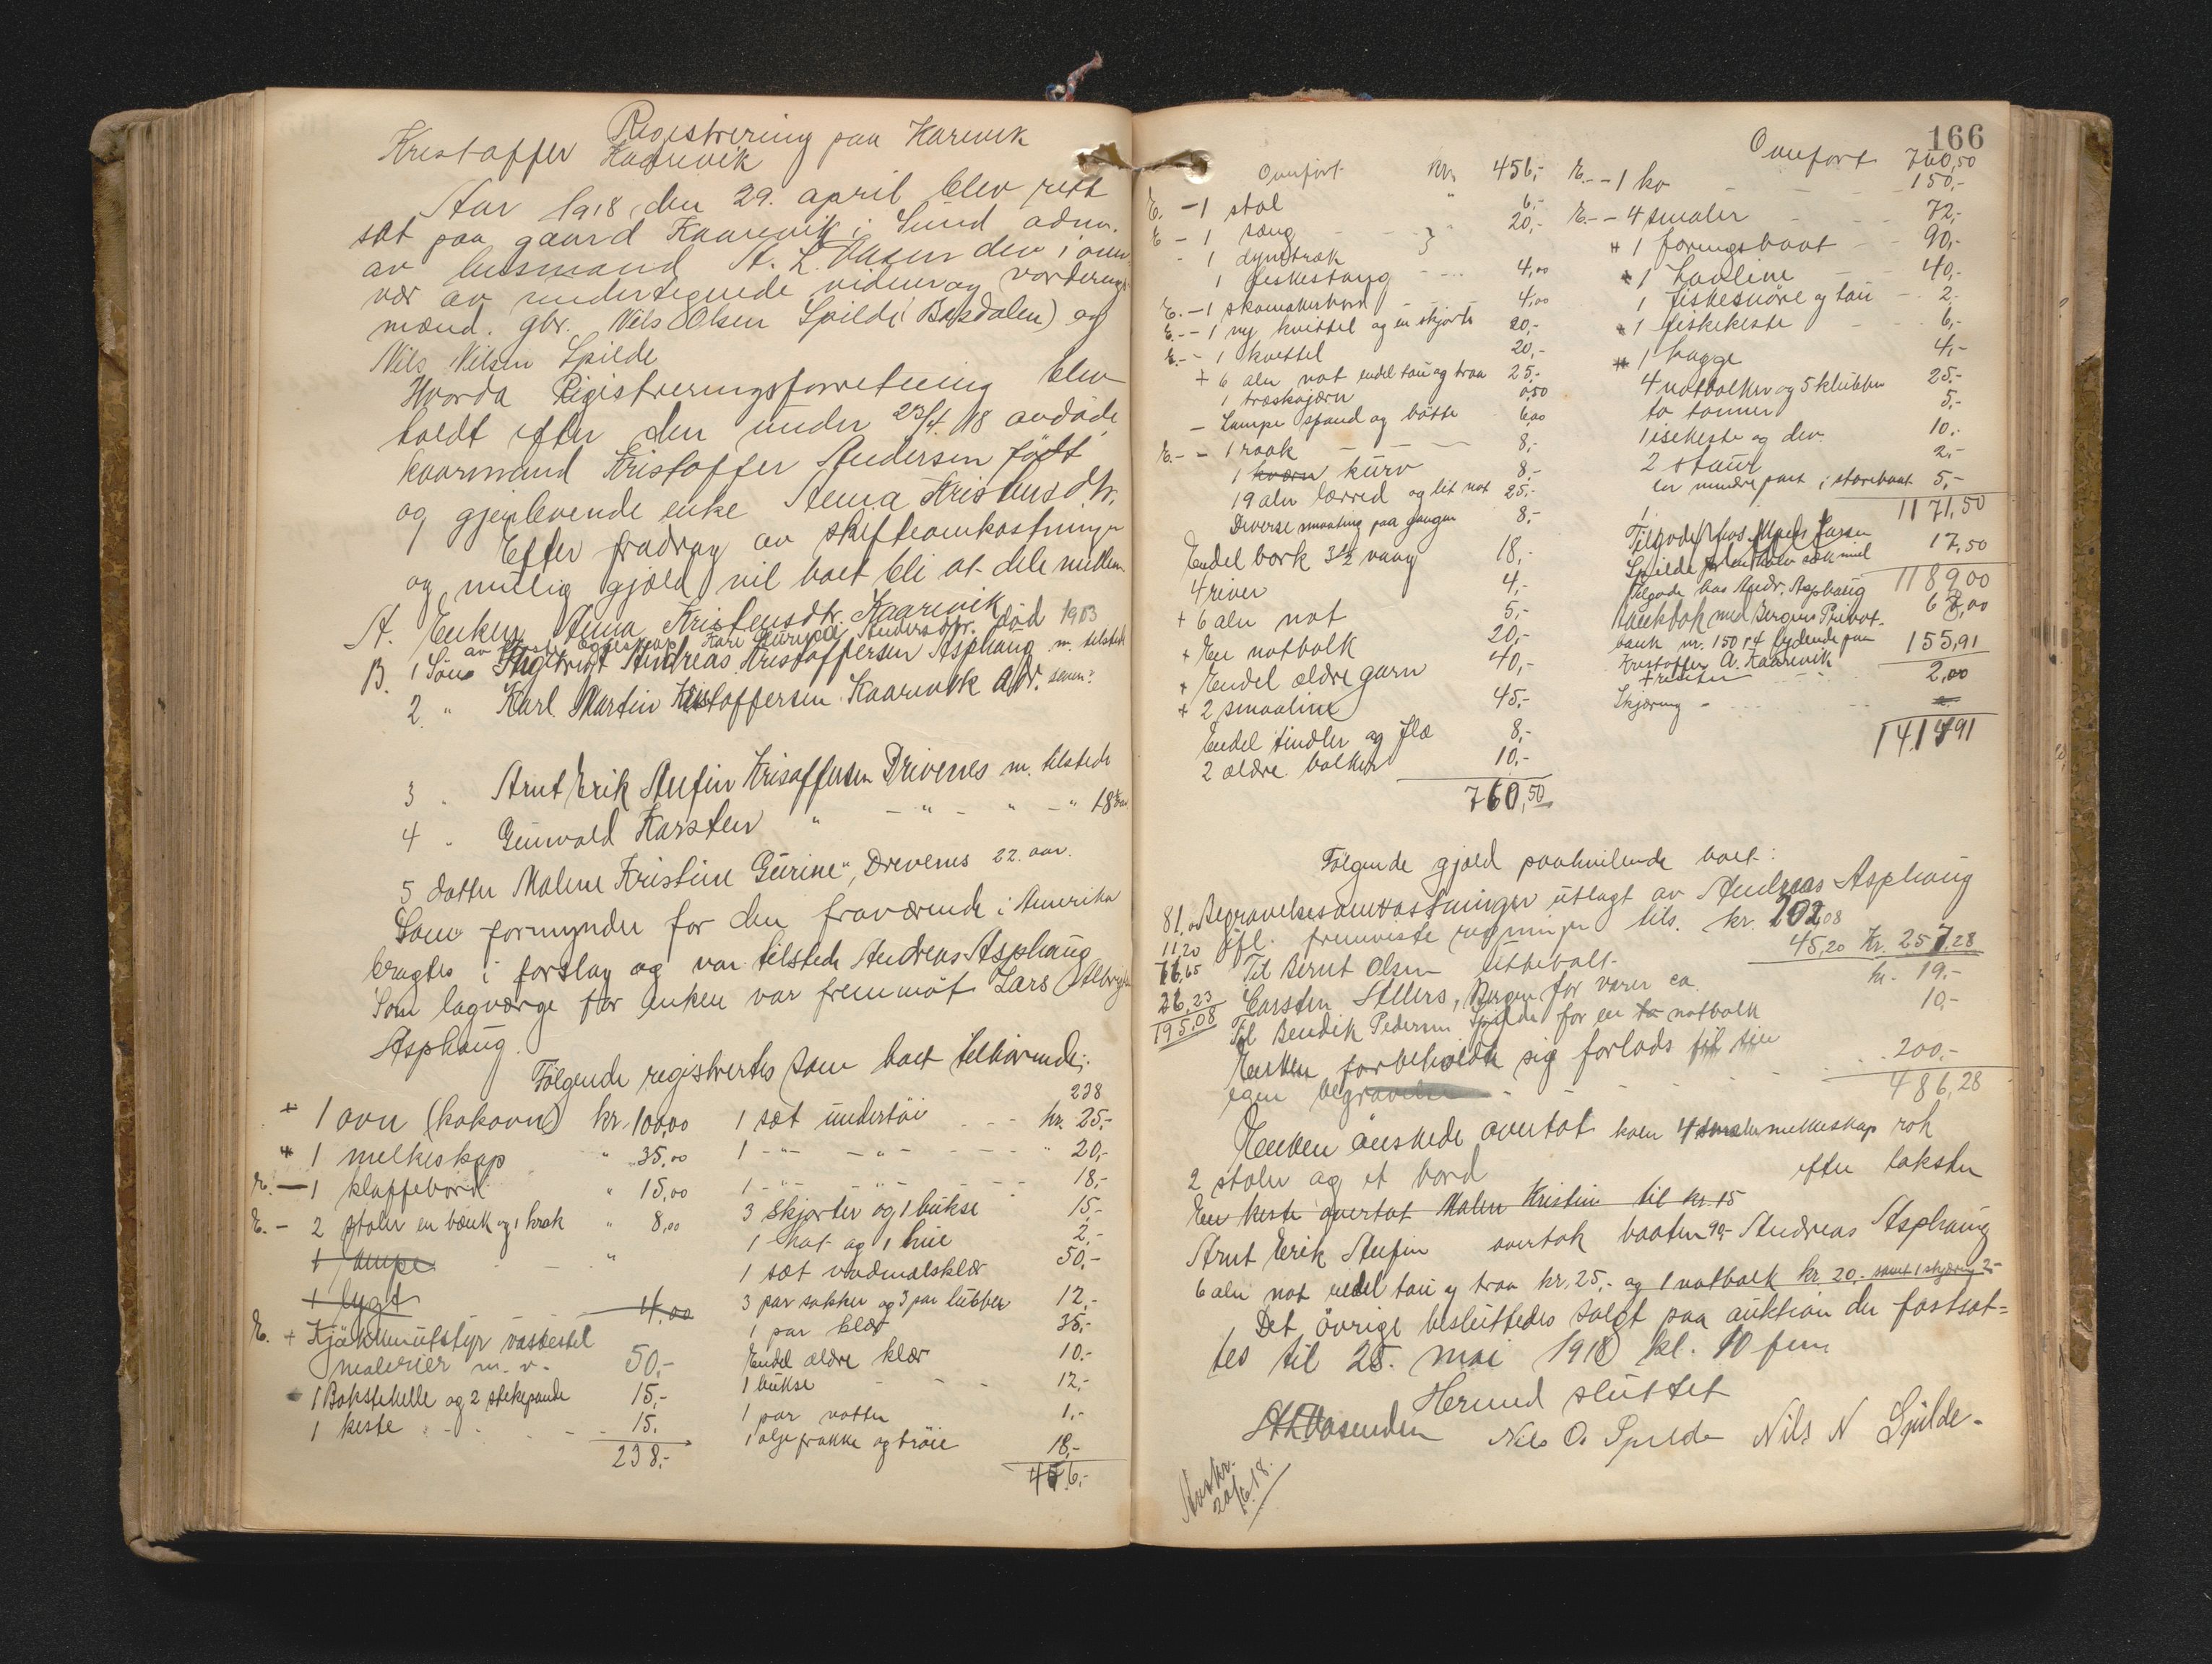 Registrering paa Karevik
Kristoffer Kaarevik
Aar 1918 den 29. april blev rett
sat paa gaard Kaarevik i Sund adm.
av lensmand A. L. Vasenden i over
vær av undertegnede vidner og vorderings
mænd. gbr. Nils Olsen Spilde (Bakdalen) og
Nils Nilsen Spilde
Hvorda Registreringsforretning blev
holdt efter den under 23/4 18 avdöde
kaarmand Kristoffer Andersen födt
og gjenlevende enke Anna Kristensdtr.
Efter fradrag av skifteomkostninger
og mulig gjæld vil boet bli at dele mellem
A. Enken Anna Kristensdtr. Kaarevik
av förste egteskap Kari Andersdtr. död 1903
B. 1 Sön Andreas Kristoffersen Asphaug m. tilstede
2. " Karl Martin Kristoffersen Kaarevik
3 " Arnt Erik Anfin Kristoffersen Drivenes m. tilstede
4 " Gunvald Karsten " - " - " - " 18 aar
5 datter Malene Kristine Gurine", Drevenes 22. aar.
Som formynder for den fraværende i Amerika
bragtes i forslag og var tilstede Andreas Asphaug
Som lagværge for enken var fremmöt Lars
Asphaug.
Fölgende registrertes som boet tilhörende:
+ 1 ovn (kokovn) kr. 100,00
+ 1 melkeskap " 35,00
E. - 1 klaffebord " 15,00
E. - 2 stoler en bænk og 1 krak " 8,00
1 lampe - - "
1 lygt 4,00
E. + Kjökkenutstyr vaskestel
malerier m. v. 50,-
1 Bakstehelle og 2 stekepande 15,-
1 keste - - - 15.
238,-
238
1 sæt undertöi - - kr. 25,-
1 -"- -"- - - " 20,-
1 -"- -"- - - 18,-
3 Skjorter og 1 bukse 15,-
1 hat og 1 hue 2,-
1 sæt vadmalsklær 50,-
3 par sokker og 3 par lubber 12,-
1 par klær 35,-
Endel ældre klær 10,-
1 bukse - - - 12,-
1 par votter 1,-
1 oljefrakke og tröie 18,-
456,-
166
Overfört kr. 456,-
E. - 1 stol " 6,-
E - 1 seng - - - 20,-
- 1 dyntræk
1 fiskestang - - 4,00
E. - 1 skomakerbord - - 4,00
E. - - 1 ny kvittel og en skjorte 20,-
E. - - 1 kvittel 20,-
+ 6 alen not endel tau og traa 25,-
1 træskojærn 0,50
- Lampe spand og bötte 6,00
E. - - 1 rook - - - 8,-
1 kværn kurv 8,-
19 alen lærred og lit not 25,-
Diverse smaating paa gangen 8,-
Endel bork 3 1/2 vaag 18,-
4 river 4,-
+ 6 alen not 5,-
+ En notbolk 20,-
+ Endel ældre garn 40,-
+ 2 smaaline 45,-
Endel tindler og flæ 8,-
2 ældre bolker 10,-
760,50
Overfört 760,50
E. - - 1 ko - - - 150,-
E. - - 4 smaler - - 72,-
+ 1 föringsbaat - - 90,-
+ 1 havline - - 40,-
1 fiskesnöre og tau - - 2,-
+ 1 fiskekeste - - 6,-
+ 1 bagge 4,-
4 notbolker og 5 klubber 25,-
to tonner 5,-
1 isekeste og div. 10,-
2 staur 2,-
en mindre part i storebaat 5,-
1171,50
Tilgode hos Mons Larsen
Spilde for en halv sæk mel 17,50
118900
Tilgode hos Andr. Asphaug 68,00
Bankbok med Bergens Privat-
bank nr. 15014 lydende paa
Kristoffer A. Kaarevik 155,91
+ renter
Skjæring - - - 2,00
141491
Fölgende gjæld paahvilende boet:
Begravelsesomkostninger utlagt av Andreas Asphaug
ifl. fremviste regninger tils. kr. 202,08
Til Bernt Olsen Utbetalt 45,20 Kr. 257,28
Carsten Stillers, Bergen for varer ca. kr. 19,-
Til Bendik Pedersen Spilde for en to notbolk 10,-
Enken forbeholdte sig forlods til sin
egen begravelse - - - - 200,-
486,28
81,00
11,20
76,65
26,23
195,08
Enken önskede overtat koen 4 smaler melkeskap rok
2 stoler og et bord efter taksten
En keste overtat Malene Kristine til kr. 15
Arnt Erik Anfin overtok baaten 90,- Andreas Asphaug
6 alen not endel tau og traa kr. 25,- og 1 notbolk kr. 20,- samt 1 skjæring 2,-
Det övrige besluttedes solgt paa auktion der fastsat=
tes til 25. mai 1918 kl. 10 fm
Hermed sluttet
A L Vasenden Nils O. Spilde Nils N Spilde.
Avskr.
20/6.18.